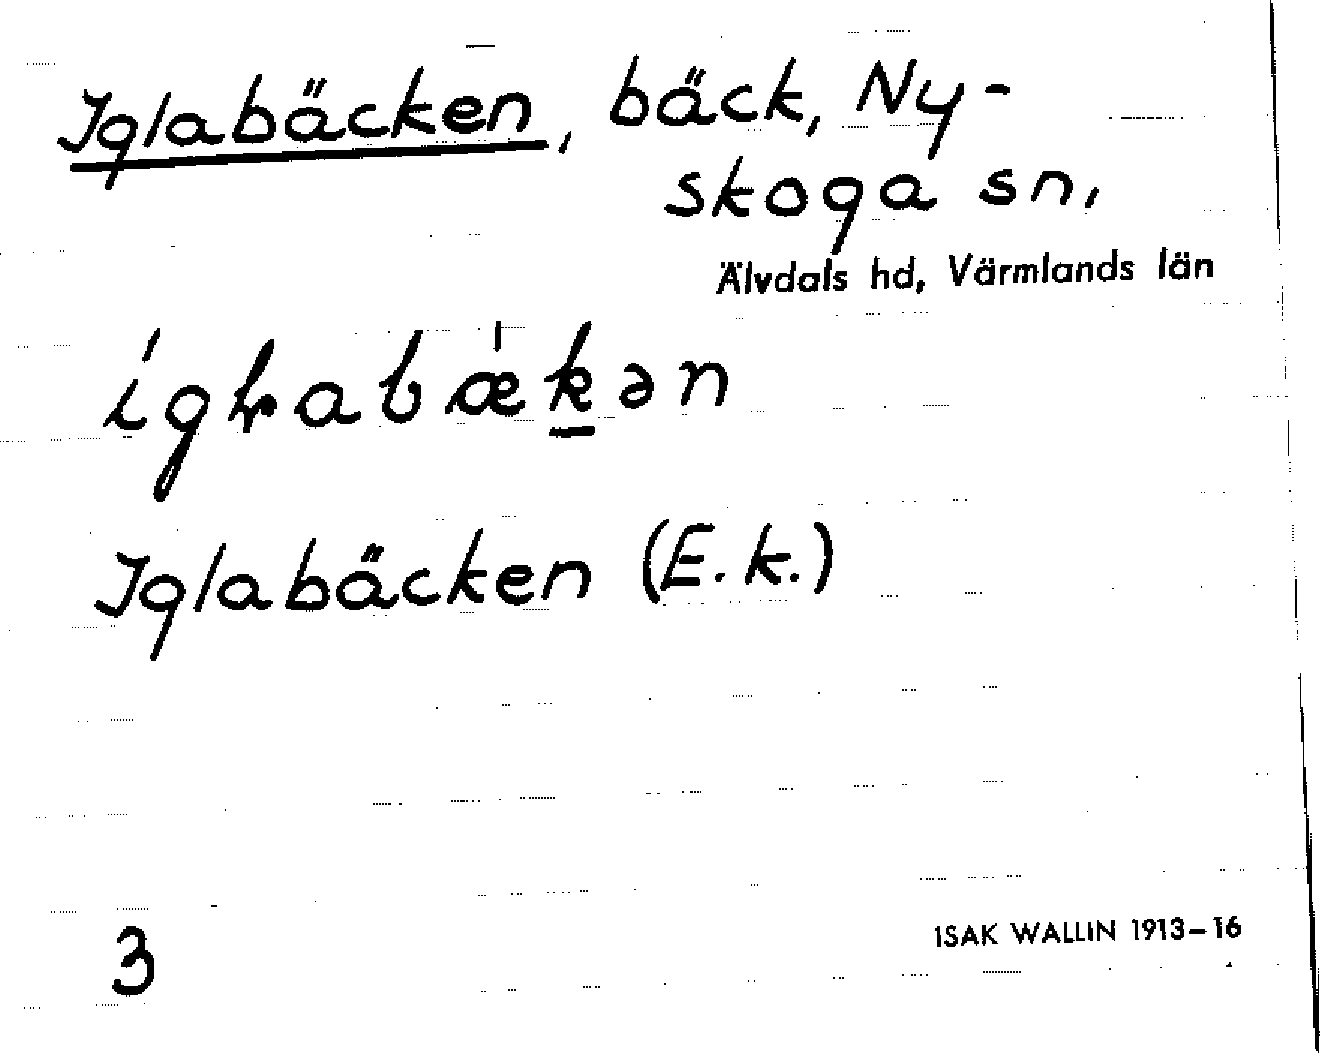 Iglabäcken, bäck, Ny-
skoga sn,
Älvdals hd, Värmlands län
Iglabäcken (E.k.)
3
ISAK WALLIN 1913–16